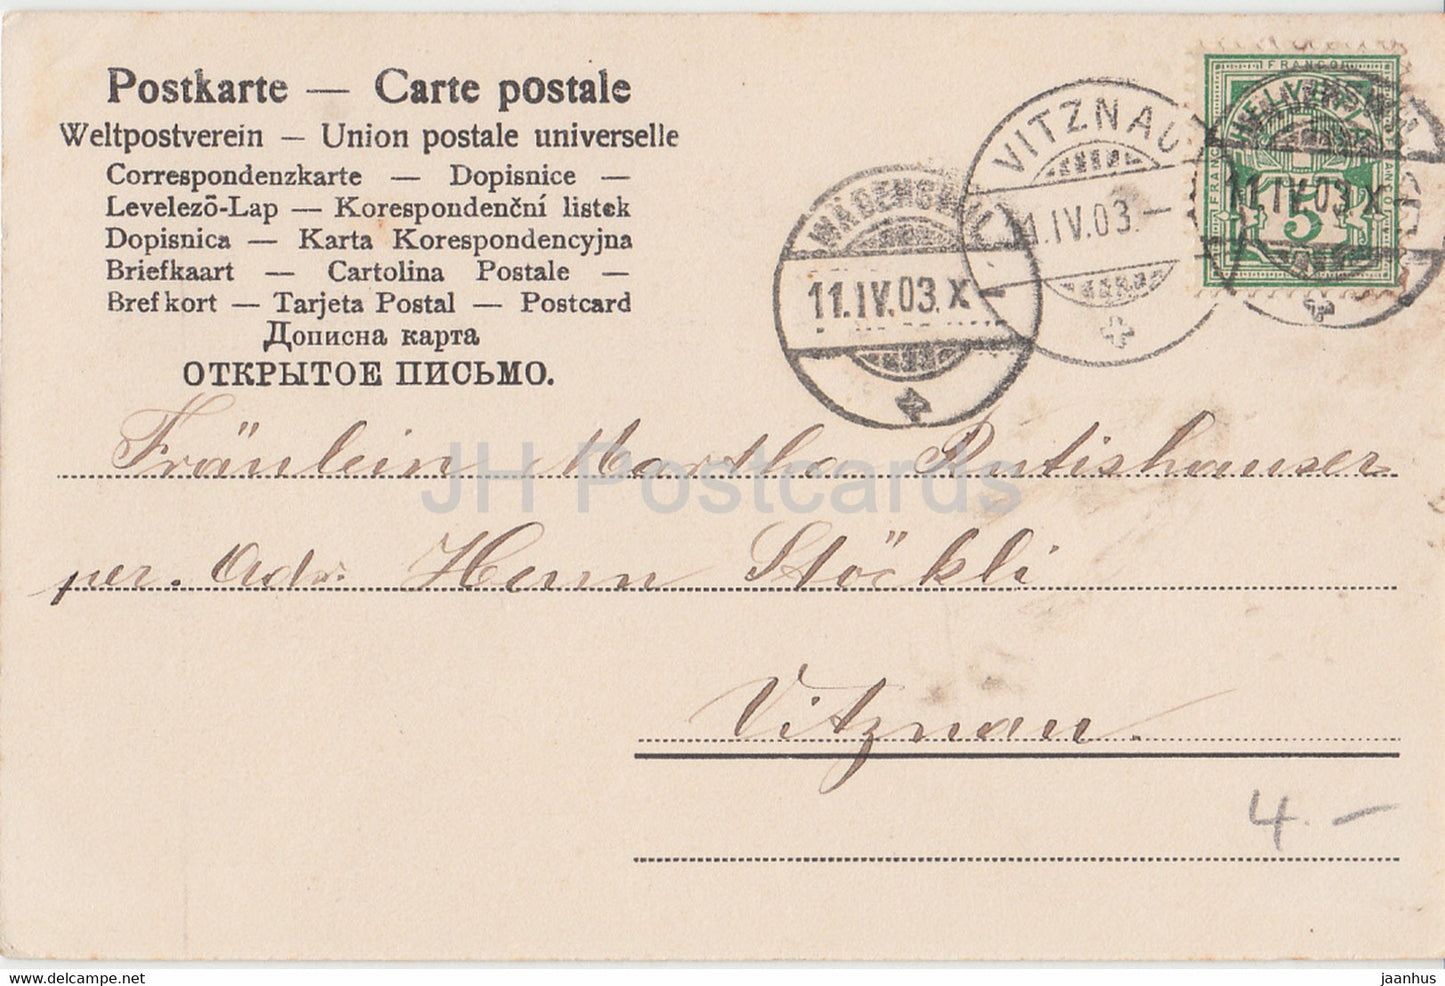 Postkarte — Carte postale
Weltpostverein — Union postale universelle
Correspondenzkarte — Dopisnice —
Levelezõ-Lap — Korespondenční listek
Dopisnica — Karta Korespondencyjna
Briefkaart — Cartolina Postale —
Brefkort — Tarjeta Postal — Postcard
Дописна карта
ОТКРЫТОЕ ПИСЬМО.
WÄDENSWIL
11.IV.03.X
VITZNAU
11.IV.03.—
FRANCO
5
11.IV.03.X
Fräulein Martha Rutishauser
per. Adr. Herrn Stöckli
Vitznau.
4.—
JH Postcards
jaanhus